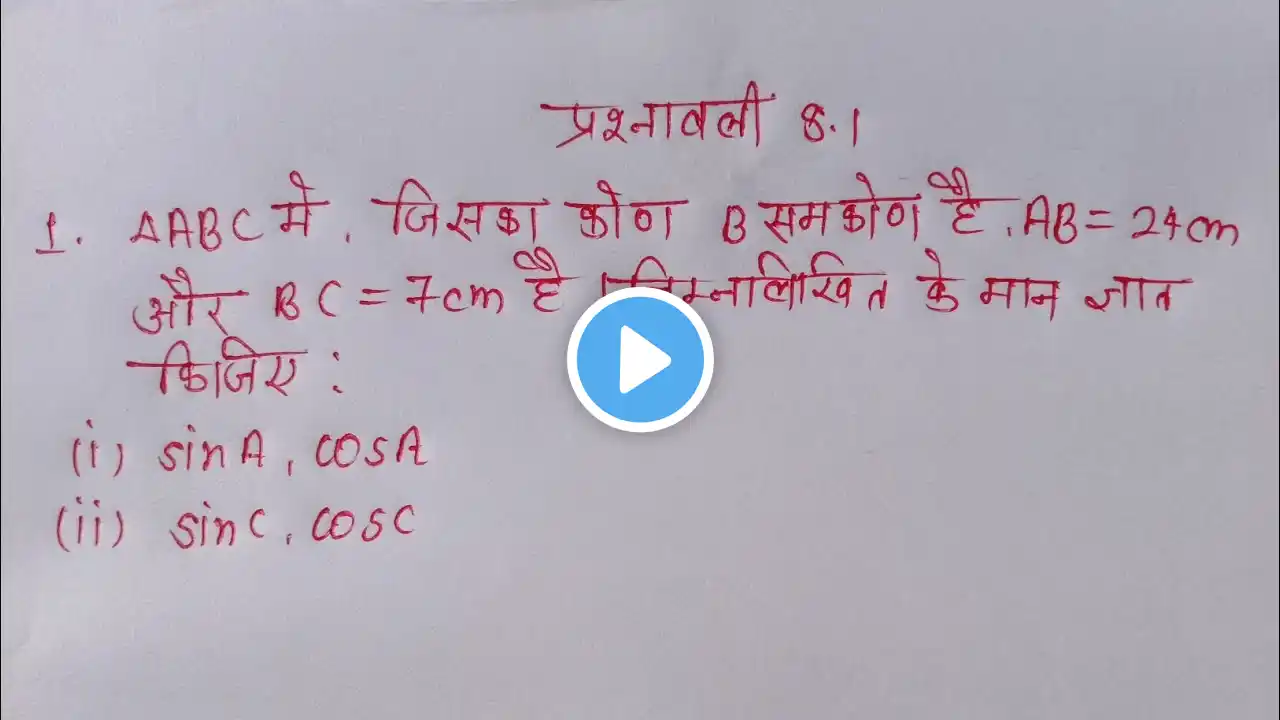 प्रश्नावली 8.1
1. ΔABC में, जिसका कोण B समकोण है, AB = 24 cm
और BC = 7 cm है । निम्नलिखित के मान ज्ञात
किजिए :
(i) sin A, cos A
(ii) sin C, cos C